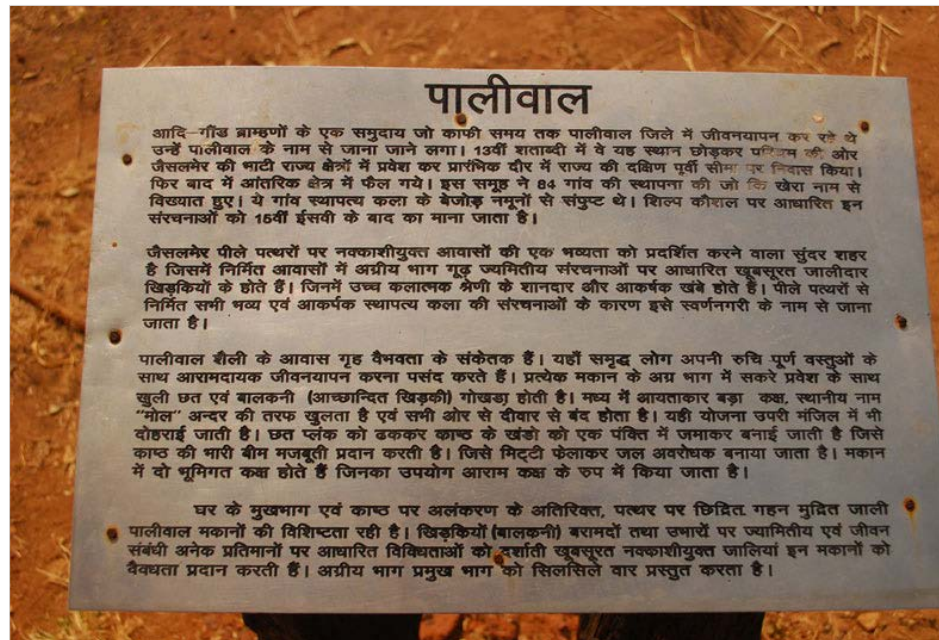 पालीवाल
आदि-गौंड ब्राम्हणों के एक समुदाय जो काफी समय तक पालीवाल जिले में जीवनयापन कर रहे थे
उन्हें पालीवाल के नाम से जाना जाने लगा। 13वीं शताब्दी में वे यह स्थान छोड़कर पश्चिम की ओर
जैसलमेर की भाटी राज्य क्षेत्रों में प्रवेश कर प्रारंभिक दौर में राज्य की दक्षिण पूर्वी सीमा पर निवास किया।
फिर बाद में आंतरिक क्षेत्र में फैल गये। इस समूह ने 84 गांव की स्थापना की जो कि खेरा नाम से
विख्यात हुए। ये गांव स्थापत्य कला के बेजोड़ नमूनों से संपुष्ट थे। शिल्प कौशल पर आधारित इन
संरचनाओं को 15वीं ईसवी के बाद का माना जाता है।
जैसलमेर पीले पत्थरों पर नक्काशीयुक्त आवासों की एक भव्यता को प्रदर्शित करने वाला सुंदर शहर
है जिसमें निर्मित आवासों में अग्रीय भाग गूढ़ ज्यमितीय संरचनाओं पर आधारित खूबसूरत जालीदार
खिड़कियों के होते हैं। जिनमें उच्च कलात्मक श्रेणी के शानदार और आकर्षक खंबे होते हैं। पीले पत्थरों से
निर्मित सभी भव्य एवं आकर्पक स्थापत्य कला की संरचनाओं के कारण इसे स्वर्णनगरी के नाम से जाना
जाता है।
पालीवाल शैली के आवास गृह वैभवता के संकेतक हैं। यहाँ समृद्ध लोग अपनी रुचि पूर्ण वस्तुओं के
साथ आरामदायक जीवनयापन करना पसंद करते हैं। प्रत्येक मकान के अग्र भाग में सकरे प्रवेश के साथ
खुली छत एवं बालकनी (आच्छान्दित खिड़की) गोखडा़ होती है। मध्य में आयताकार बड़ा कक्ष, स्थानीय नाम
"मोल" अन्दर की तरफ खुलता है एवं सभी ओर से दीवार से बंद होता है। यही योजना उपरी मंजिल में भी
दोहराई जाती है। छत प्लंक को ढककर काष्ठ के खंडो को एक पंक्ति में जमाकर बनाई जाती है जिसे
काष्ठ की भारी बीम मजबूती प्रदान करती है। जिसे मिट्टी फेलाकर जल अवरोधक बनाया जाता है। मकान
में दो भूमिगत कक्ष होते हैं जिनका उपयोग आराम कक्ष के रुप में किया जाता है।
घर के मुखभाग एवं काष्ठ पर अलंकरण के अतिरिक्त, पत्थर पर छिद्रित गहन मुद्रित जाली
पालीवाल मकानों की विशिष्टता रही है। खिड़कियों (बालकनी) बरामदों तथा उभारों पर ज्यामितीय एवं जीवन
संबंधी अनेक प्रतिमानों पर आधारित विविधताओं को दर्शाती खूबसूरत नक्काशीयुक्त जालियां इन मकानों को
वैवधता प्रदान करती हैं। अग्रीय भाग प्रमुख भाग को सिलसिले वार प्रस्तुत करता है।